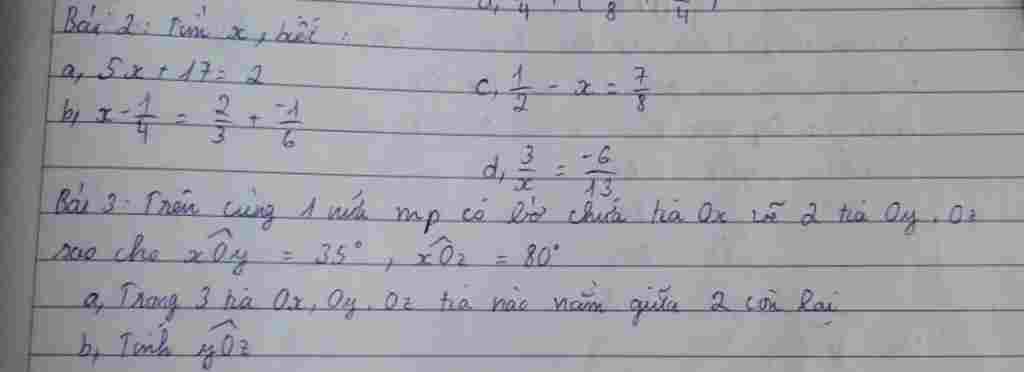 Bài 2: Tìm x, biết:
a, 5x + 17 = 2
c, 1/2 - x = 7/8
b, x - 1/4 = 2/3 + -1/6
d, 3/x = -6/13
Bài 3: Trên cùng 1 nửa mp có bờ chứa tia Ox vẽ 2 tia Oy, Oz
sao cho xOy = 35°, xOz = 80°
a, Trong 3 tia Ox, Oy, Oz tia nào nằm giữa 2 còn lại
b, Tính yOz